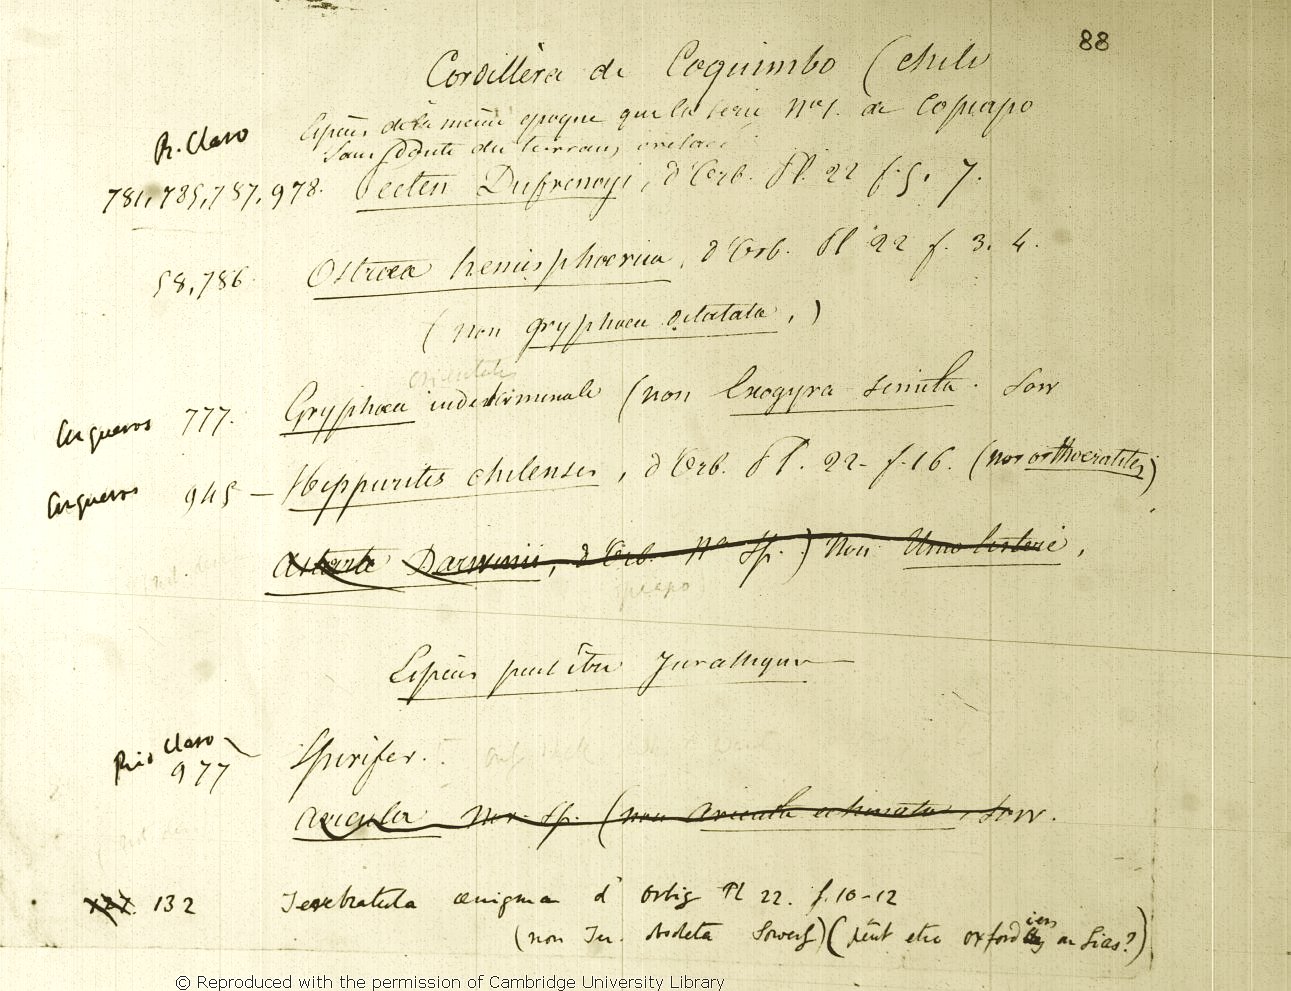 88
Cordillèra de Coquimbo (Chili
Espèces de la même epoque que la serie No 1. de Copiapo
R. Claro
Sans doute du terrain crétacé
781, 785, 787, 978. Pecten Dufrenoyi, d'Orb. Pl. 22 f. 5. 7.
58, 786. Ostraea hemisphoerica, d'Orb. Pl 22 f. 3. 4.
(non gryphaea dilatata,)
orientalis
Arqueros 777. Gryphaea indeterminable (non Exogyra sinuata. Sow
Arqueros 945 – Hippurites chilensis, d'Orb. Pl. 22- f. 16. (non orthoceratites)
Astarte Darwinii, d'Orb. No Sp.) non Unio Listeri,
Espèces peut être Jurassiques
Rio Claro
977 Spirifer.
Avicula Nov. Sp. (non Avicula echinata, Sow.
127. 132 Terebratula aenigma d'Orbig Pl 22. f. 10-12
(non Ter. obsoleta Sowerb) (peut etre oxfordien ou Lias?)
© Reproduced with the permission of Cambridge University Library